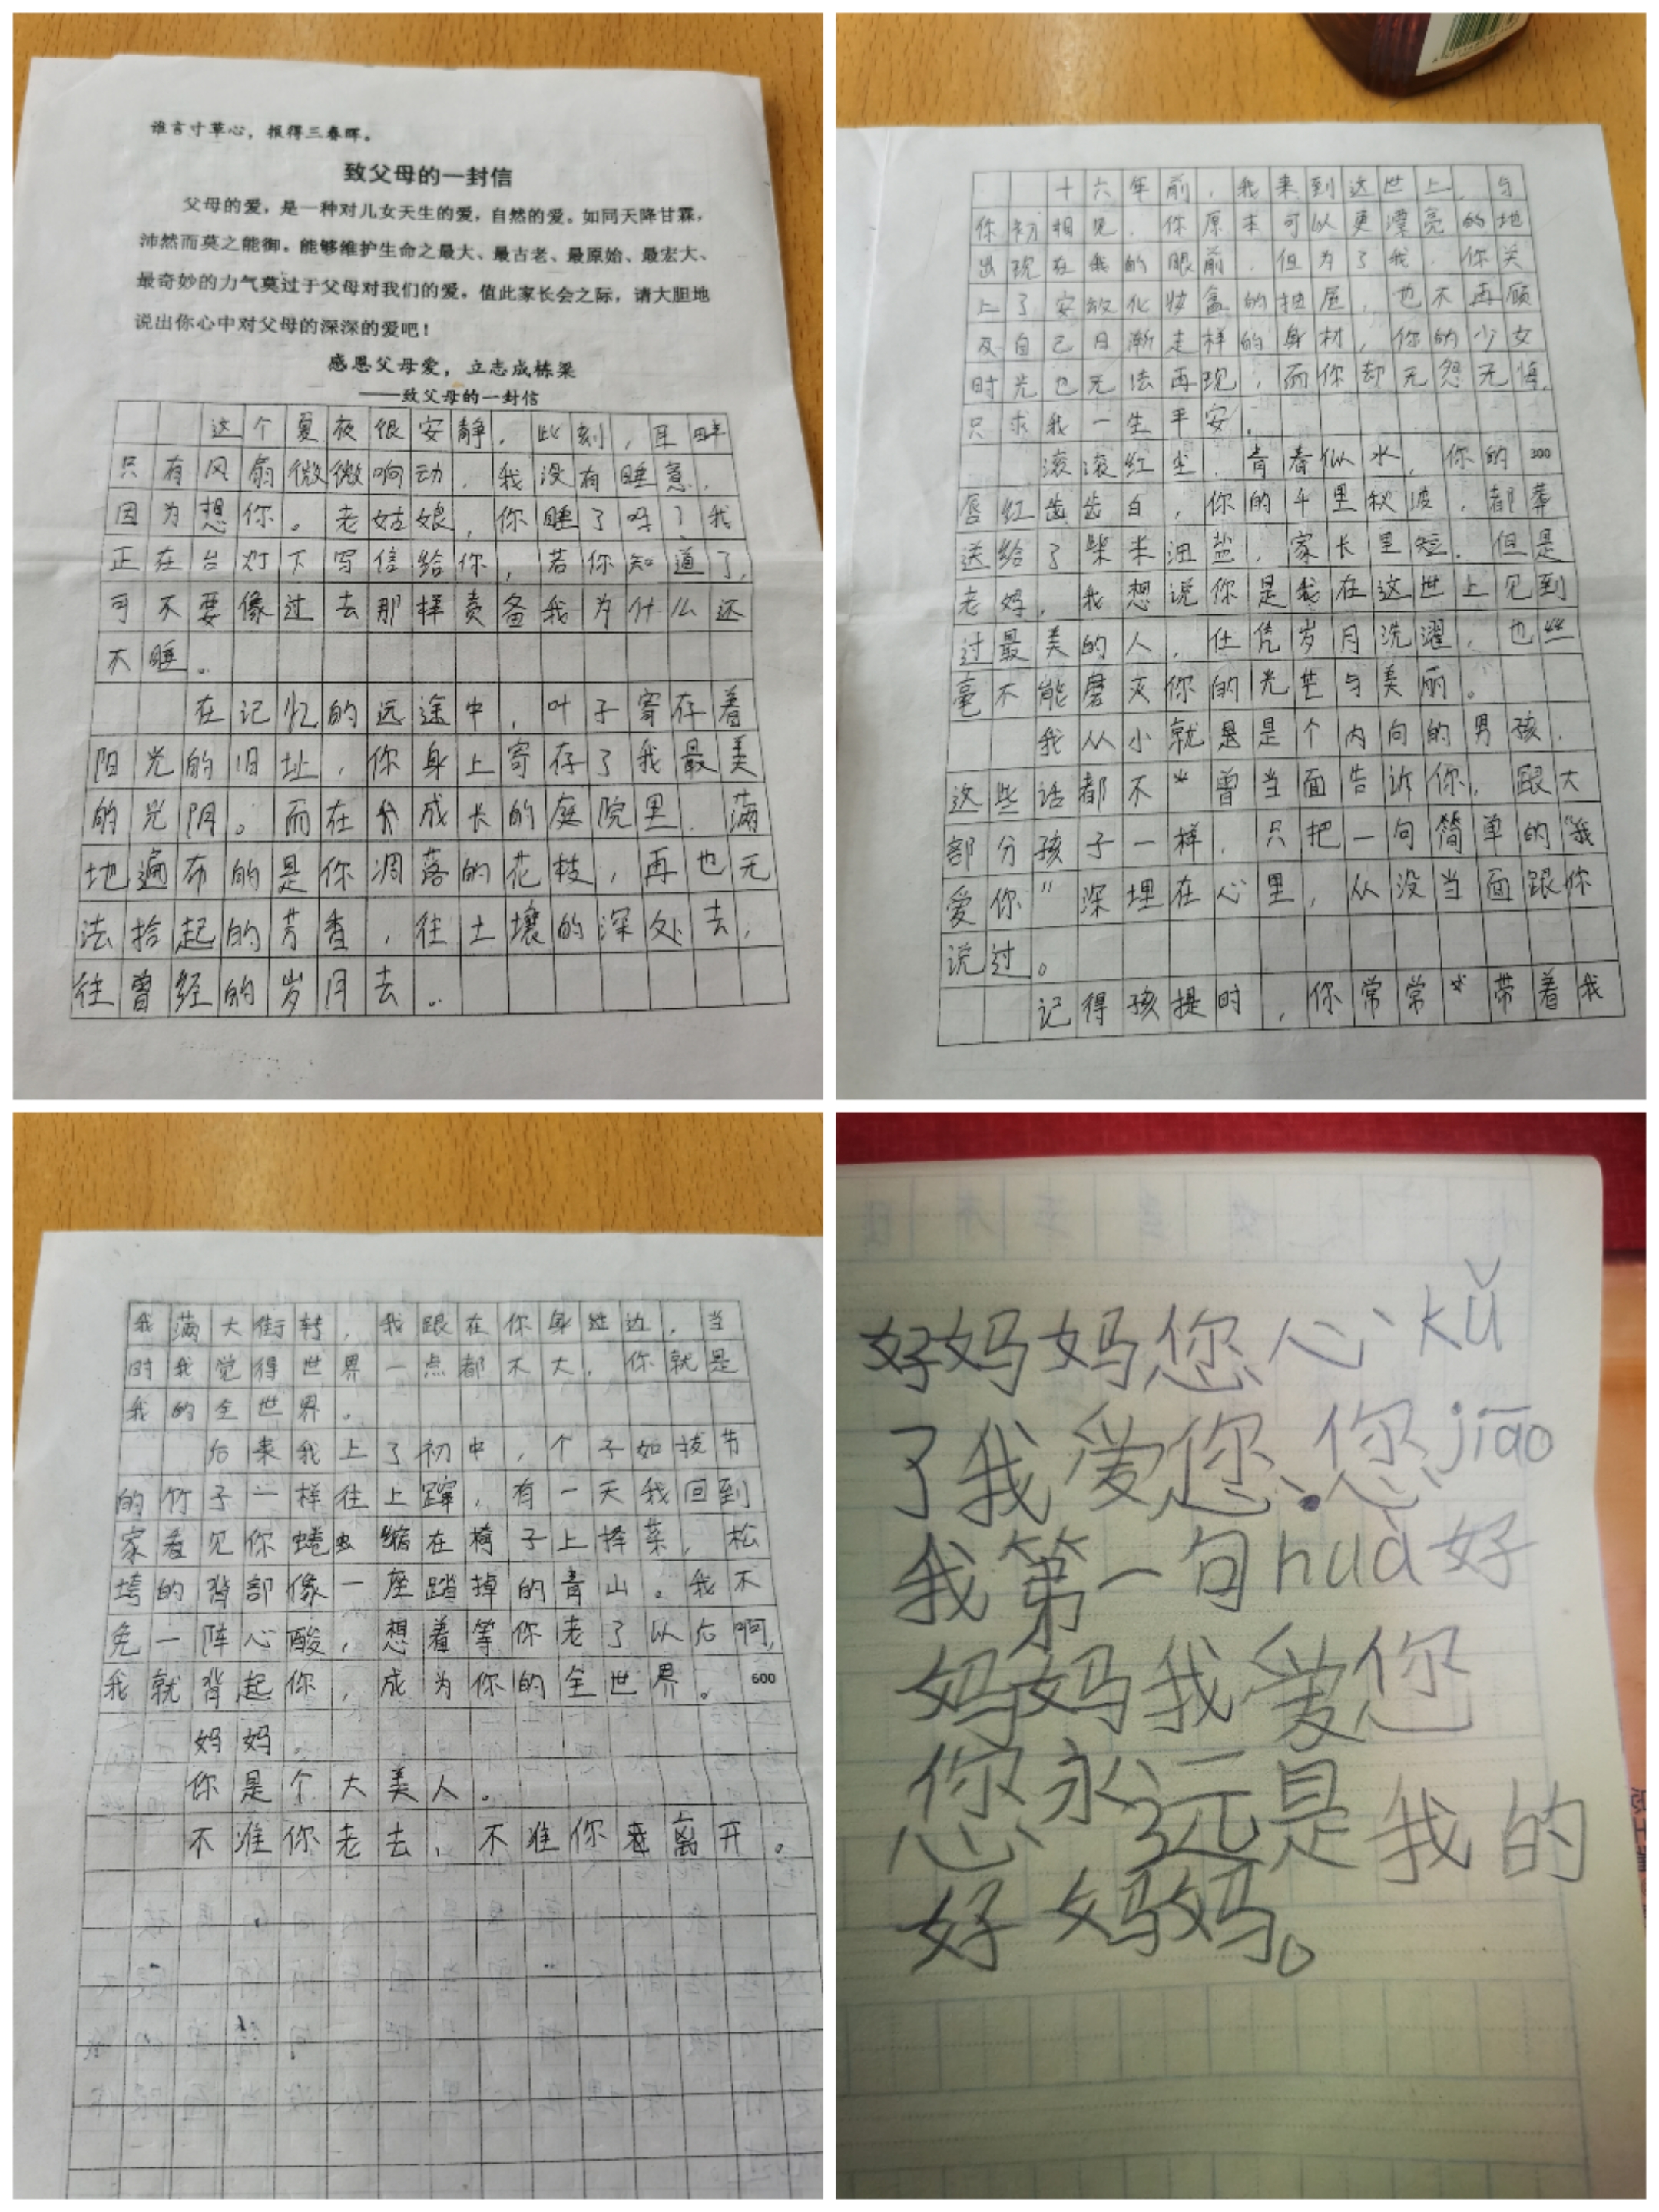 谁言寸草心，报得三春晖。
致父母的一封信
父母的爱，是一种对儿女天生的爱，自然的爱。如同天降甘霖，
沛然而莫之能御。能够维护生命之最大、最古老、最原始、最宏大、
最奇妙的力气莫过于父母对我们的爱。值此家长会之际，请大胆地
说出你心中对父母的深深的爱吧！
感恩父母爱，立志成栋梁
——致父母的一封信
这个夏夜很安静，此刻，耳畔
只有风扇微微响动，我没有睡意，
因为想你。老姑娘，你睡了吗？我
正在台灯下写信给你，若你知道了，
可不要像过去那样责备我为什么还
不睡。
在记忆的远途中，叶子寄存着
阳光的旧址，你身上寄存了我最美
的光阴。而在我成长的庭院里，满
地遍布的是你凋落的花枝，再也无
法拾起的芳香，往土壤的深处去，
往曾经的岁月去。
十六年前，我来到这世上，与
你初相见，你原本可以更漂亮的地
出现在我的眼前，但为了我，你关
上了安放化妆盒的抽屉，也不再顾
及自己日渐走样的身材，你的少女
时光也无法再现，而你却无怨无悔，
只求我一生平安。
滚滚红尘，青春似水，你的 300
唇红齿齿白，你的千里秋波，都葬
送给了柴米油盐，家长里短，但是
老妈，我想说你是我在这世上见到
过最美的人，任凭岁月洗濯，也丝
毫不能磨灭你的光芒与美丽。
我从小就是是个内向的男孩，
这些话都不曾当面告诉你，跟大
部分孩子一样，只把一句简单的“我
爱你”深埋在心里，从没当面跟你
说过。
记得孩提时，你常常带着我
我满大街转，我跟在你身边，当
时我觉得世界一点都不大，你就是
我的全世界。
后来我上了初中，个子如拔节
的竹子一样往上蹿，有一天我回到
家看见你蜷缩在椅子上择菜，松
垮的背部像一座踏掉的青山。我不
免一阵心酸，想着等你老了以后啊，
我就背起你，成为你的全世界。 600
妈妈，
你是个大美人。
不准你老去，不准你离开。
好妈妈妈您心kǔ
了我爱您。您jiāo
我第一句huà好
妈妈我爱您
您永远是我的
好妈妈。